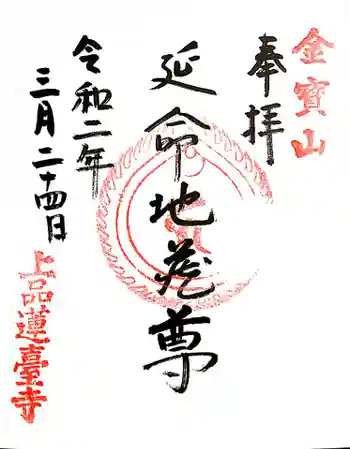 金寶山
奉拝
延命地蔵尊
令和二年
三月二十四日
上品蓮臺寺